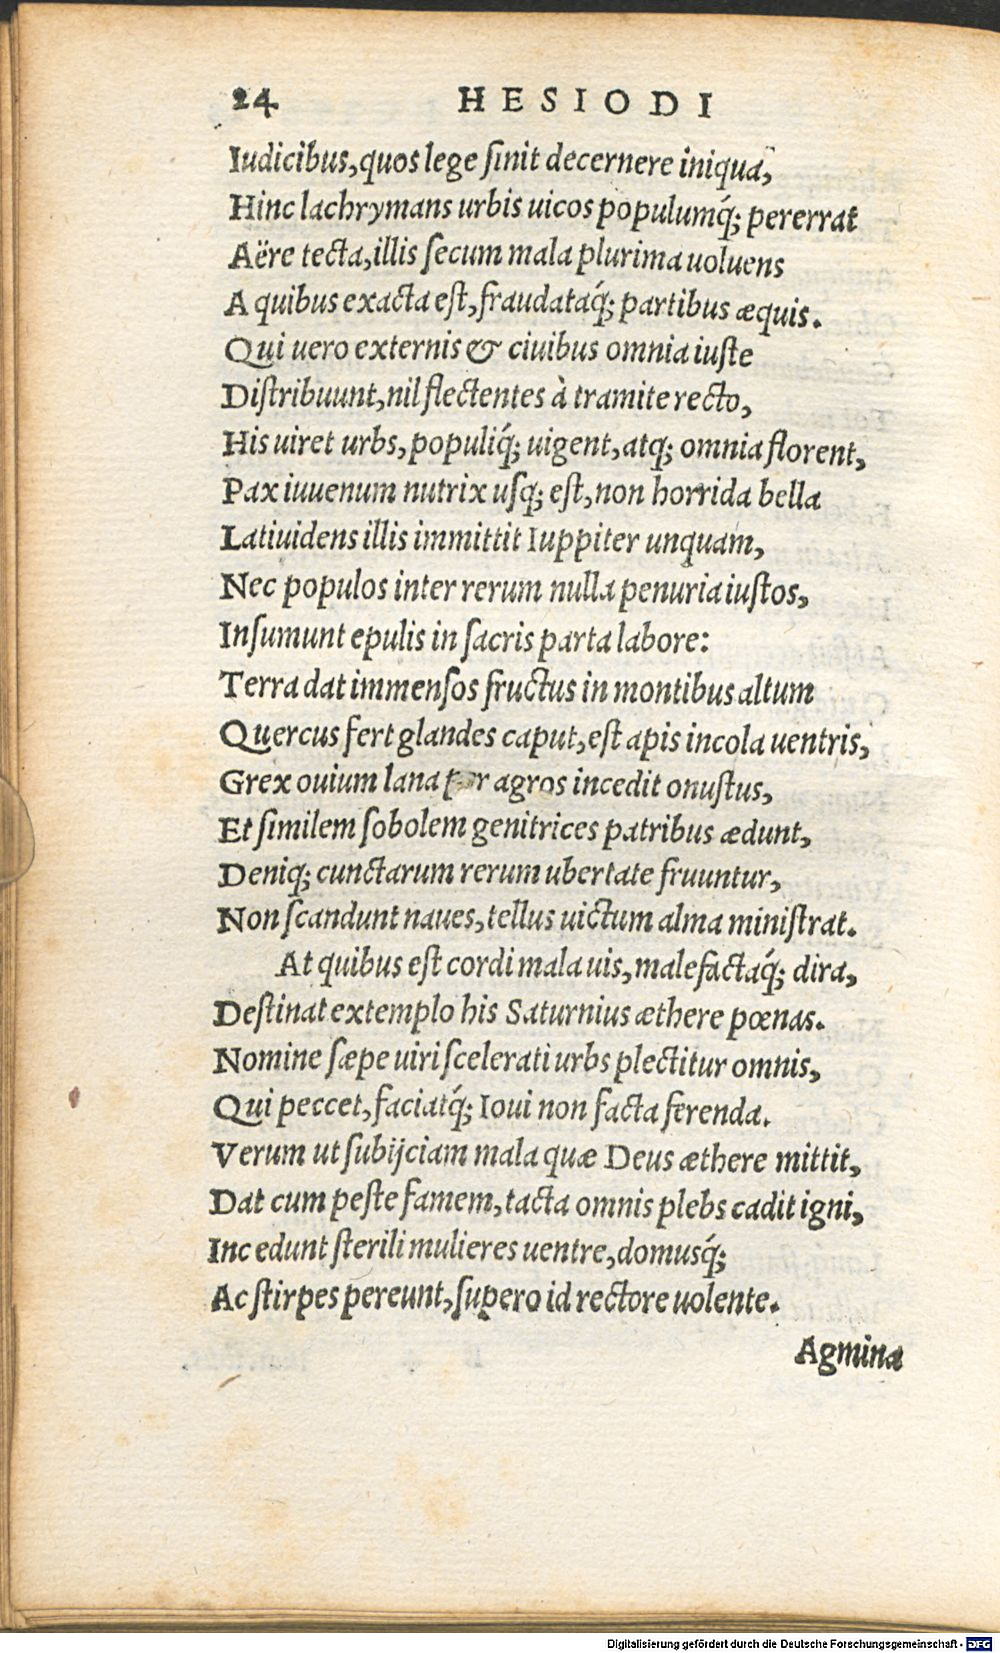 24 HESIODI
Iudicibus, quos lege ſinit decernere iniqua,
Hinc lachrymans urbis uicos populumq́; pererrat
Aëre tecta, illis ſecum mala plurima uoluens
A quibus exacta eſt, fraudataq́; partibus æquis.
Qui uero externis & ciuibus omnia iuſte
Diſtribuunt, nil flectentes à tramite recto,
His uiret urbs, populiq́; uigent, atq; omnia florent,
Pax iuuenum nutrix uſq; eſt, non horrida bella
Latiuidens illis immittit Iuppiter unquam,
Nec populos inter rerum nulla penuria iuſtos,
Inſumunt epulis in ſacris parta labore:
Terra dat immenſos fructus in montibus altum
Quercus fert glandes caput, eſt apis incola uentris,
Grex ouium lana per agros incedit onuſtus,
Et ſimilem ſobolem genitrices patribus ædunt,
Deniq; cunctarum rerum ubertate fruuntur,
Non ſcandunt naues, tellus uictum alma miniſtrat.
At quibus eſt cordi mala uis, malefactaq́; dira,
Deſtinat extemplo his Saturnius æthere pœnas.
Nomine ſæpe uiri ſcelerati urbs plectitur omnis,
Qui peccet, faciatq́; Ioui non facta ferenda.
Verum ut ſubijciam mala quæ Deus æthere mittit,
Dat cum peſte famem, tacta omnis plebs cadit igni,
Inc edunt ſterili mulieres uentre, domusq́;
Ac ſtirpes pereunt, ſupero id rectore uolente.
Agmina
Digitalisierung gefördert durch die Deutsche Forschungsgemeinschaft - DFG